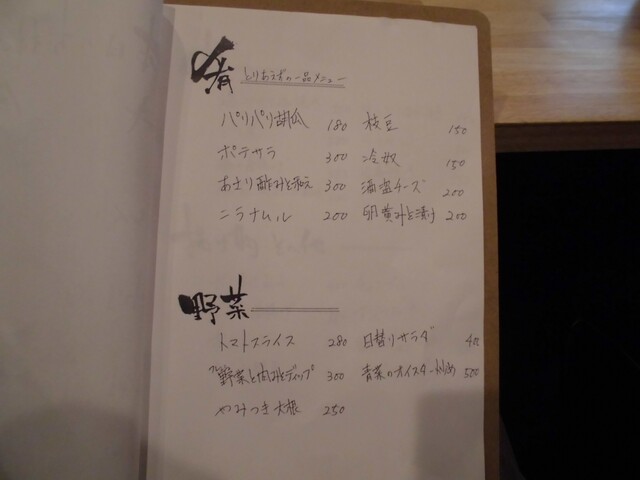 肴 とりあえずの一品メニュー
パリパリ胡瓜 180 枝豆 150
ポテサラ 300 冷奴 150
あさり酢みそ和え 300 酒盗チーズ 200
ニラナムル 200 卵黄みそ漬け 200
野菜
トマトスライス 280 日替りサラダ
野菜と肉みそディップ 300 青菜のオイスター炒め 500
やみつき大根 250